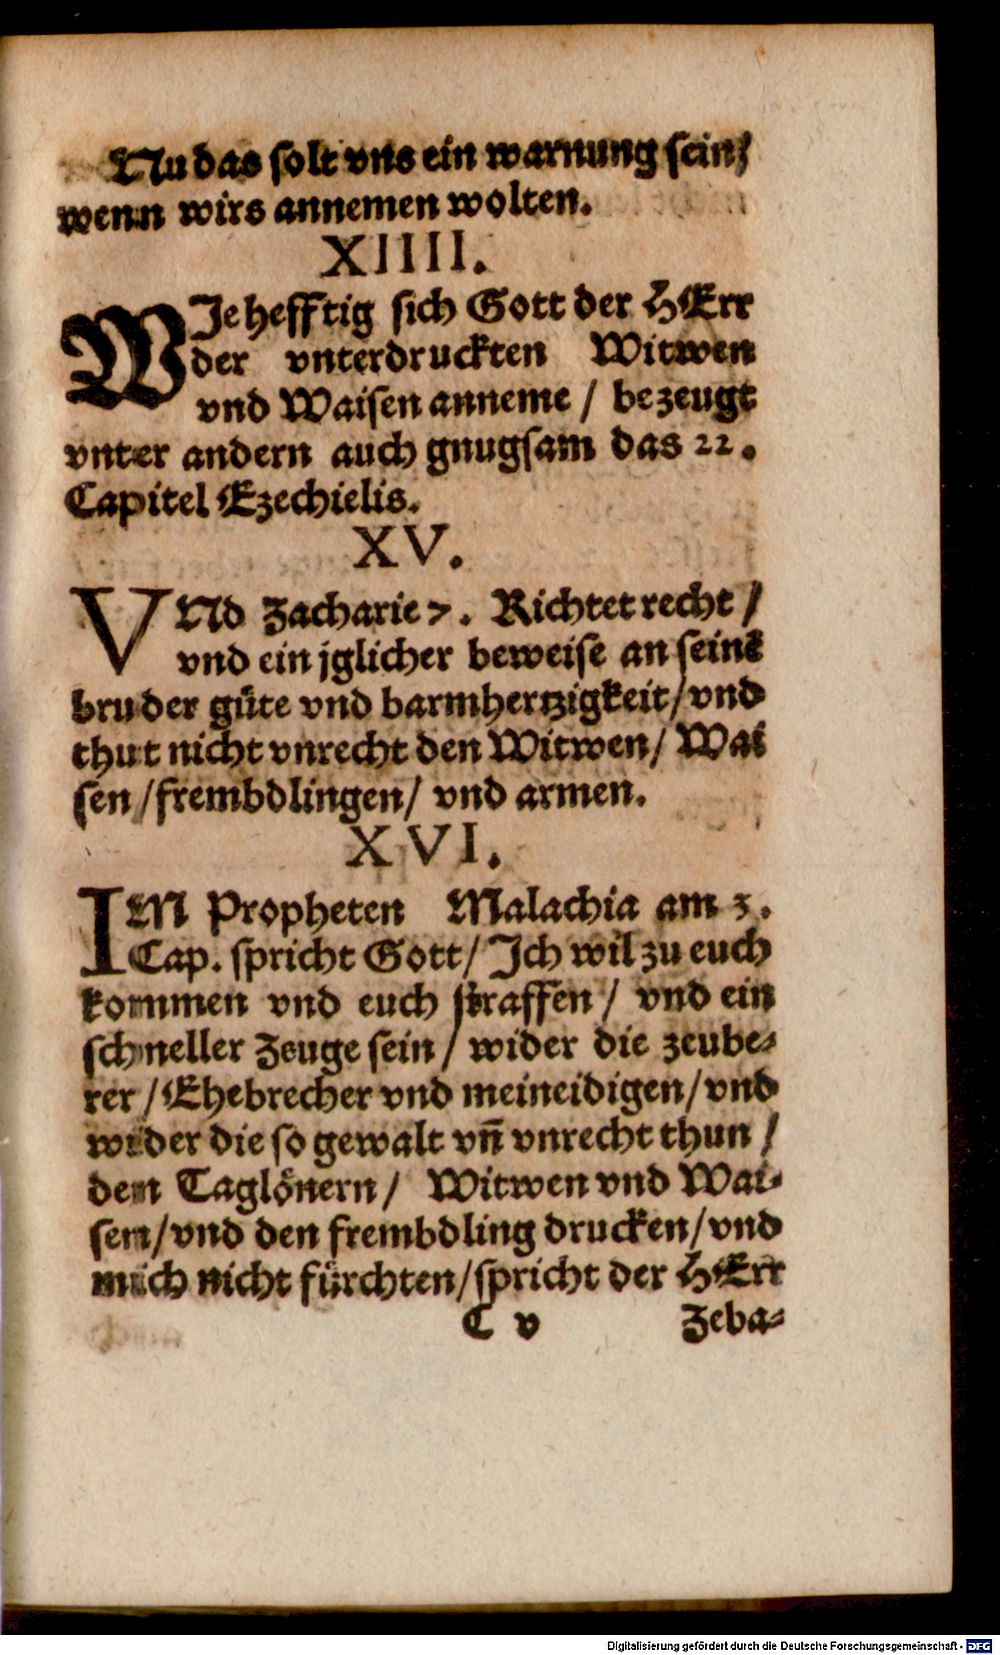 Nu das solt vns ein warnung sein/
wenn wirs annemen wolten.
XIIII.
WJe hefftig sich Gott der HErr
der vnterdruckten Witwen
vnd Waisen anneme / bezeugt
vnter andern auch gnugsam das 22.
Capitel Ezechielis.
XV.
VNd Zacharie 7. Richtet recht /
vnd ein jglicher beweise an seinē
bruder güte vnd barmhertzigkeit/ vnd
thut nicht vnrecht den Witwen/ Wai
sen /frembdlingen/ vnd armen.
XVI.
IM Propheten Malachia am 3.
Cap. spricht Gott/ Jch wil zu euch
kommen vnd euch straffen / vnd ein
schneller Zeuge sein / wider die zeube-
rer / Ehebrecher vnd meineidigen/ vnd
wider die so gewalt vñ vnrecht thun /
den Taglönern/ Witwen vnd Wai-
sen/ vnd den frembdling drucken/ vnd
mich nicht fürchten/ spricht der HErr
C v Zeba-
Digitalisierung gefördert durch die Deutsche Forschungsgemeinschaft - DFG